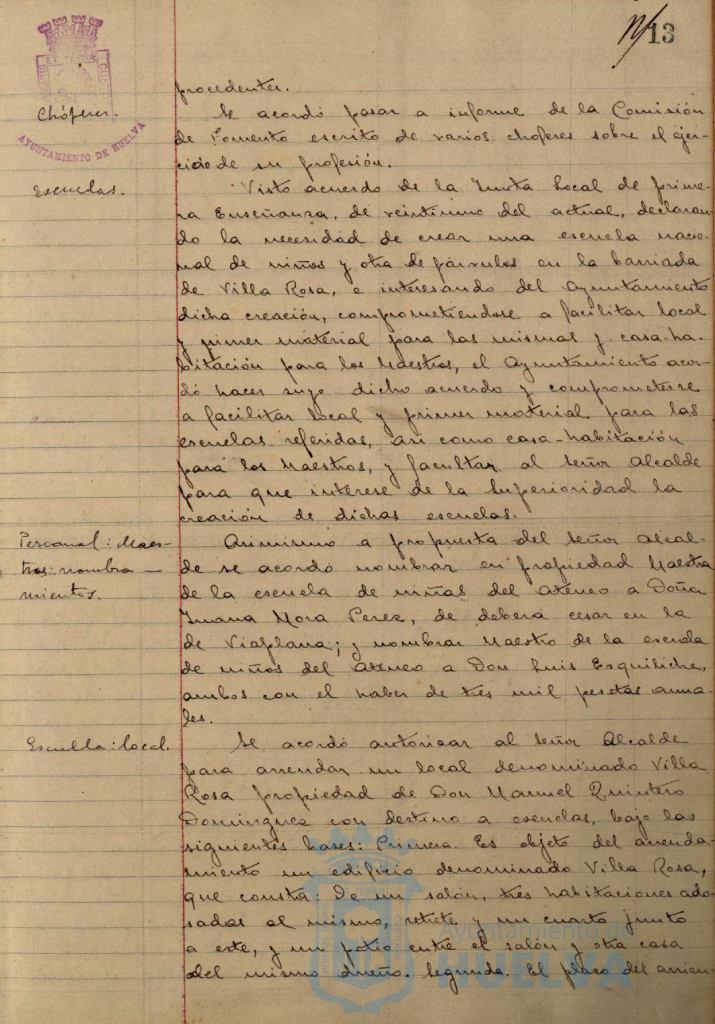 13
AYUNTAMIENTO DE HUELVA
procedentes.
Chóferes.
Se acordó pasar a informe de la Comisión
de Fomento escrito de varios choferes sobre el ejer-
cicio de su profesión.
Escuelas.
Visto acuerdo de la Junta Local de prime-
ra Enseñanza, de veintiuno del actual, declaran-
do la necesidad de crear una escuela nacio-
nal de niños y otra de párvulos en la barriada
de Villa Rosa, e interesando del Ayuntamiento
dicha creación, comprometiendose a facilitar local
y primer material para las mismas y casa-ha-
bitación para los Maestros, el Ayuntamiento acor-
dó hacer suyo dicho acuerdo y comprometerse
a facilitar local y primer material para las
escuelas referidas, asi como casa-habitación
para los Maestros, y facultar al Señor Alcalde
para que interese de la Superioridad la
creación de dichas escuelas.
Personal: Maes-
tros: nombra-
mientos.
Asimismo a propuesta del Señor Alcal-
de se acordó nombrar en propiedad Maestra
de la escuela de niñas del Ateneo a Doña
Juana Mora Perez, de deberá cesar en la
de Viaplana; y nombrar Maestro de la escuela
de niños del Ateneo a Don Luis Esquiliche,
ambos con el haber de tres mil pesetas anua-
les.
Escuela: local.
Se acordó autorizar al Señor Alcalde
para arrendar un local denominado Villa
Rosa propiedad de Don Manuel Quintero
Dominguez con destino a escuelas, bajo las
siguientes bases: Primera. Es objeto del arrenda-
miento un edificio denominado Villa Rosa,
que consta: De un salón, tres habitaciones ado-
sadas al mismo, retrete y un cuarto junto
a este, y un patio entre el salón y otra casa
del mismo dueño. Segunda. El plazo del arrien-
Ayuntamiento de
HUELVA